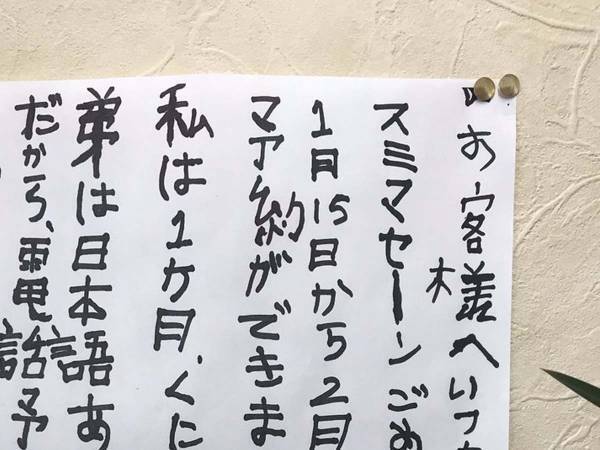 お客様へいつ
スミマセーンごめ
1月15日から2月
マア約ができま
私は1ケ月、くに
弟は日本語あ
だから、電話予